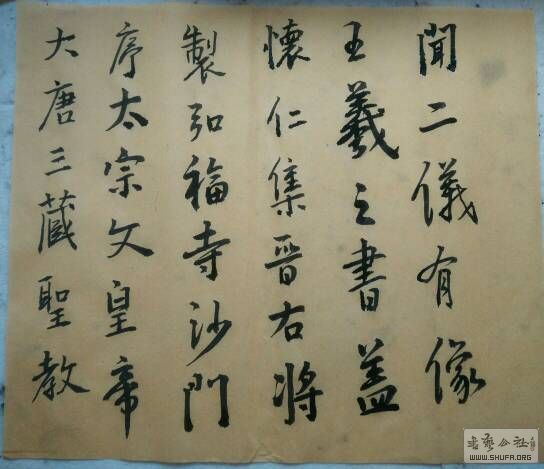 大唐三藏聖教
序太宗文皇帝
製弘福寺沙門
懷仁集晉右將
王羲之書蓋
聞二儀有像
书艺公社
WWW.SHUFA.ORG